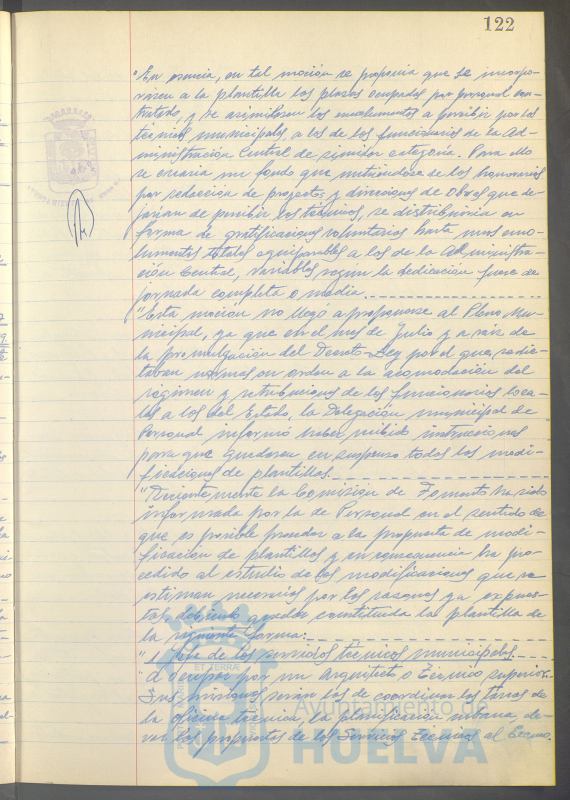 122
"En esencia, en tal moción se proponia que se incorpo-
rasen a la plantilla las plazas ocupadas por personal con-
tratado, y se asimilasen los emolumentos a percibir por los
tecnicos municipales a los de los funcionarios de la Ad-
ministración Central de similar categoria. Para ello
se crearia un fondo que nutriendose de los honorarios
por redacción de proyectos y direcciones de Obras que de-
jarian de percibir los técnicos, se distribuiria en
forma de gratificaciones voluntarias hasta unos emo-
lumentos totales equiparables a los de la Administra-
ción Central, variables según la dedicación fuese de
jornada completa o media.
"Esta moción no llegó a proponerse al Pleno Mu-
nicipal, ya que en el mes de Julio y a raiz de
la promulgación del Decreto-Ley por el que se dic-
taban normas en orden a la acomodación del
régimen y retribuciones de los funcionarios loca-
les a los del Estado, la Delegación municipal de
Personal informó haber recibido instrucciones
para que quedasen en suspenso todas las modi-
ficaciones de plantillas.
"Recientemente la Comisión de Fomento ha sido
informada por la de Personal en el sentido de
que es posible proceder a la propuesta de modi-
ficación de plantillas y en consecuencia ha pro-
cedido al estudio de las modificaciones que se
estiman necesarias por las razones ya expues-
tas, debiendo quedar constituida la plantilla de
la siguiente forma:
" 1 Jefe de los servicios técnicos municipales.
"A ocupar por un Arquitecto o Técnico superior.
Sus misiones serán las de coordinar las tareas de
la oficina técnica, la planificación urbana, ele-
var las propuestas de los Servicios Técnicos al Excmo.
ET TERRA
Ayuntamiento de
HUELVA